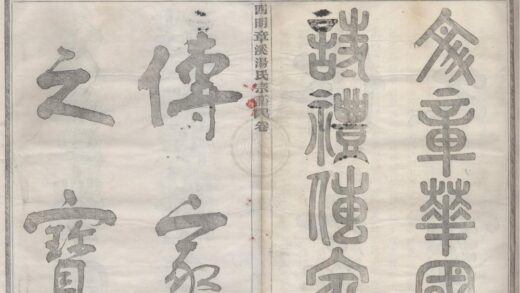 文章華國
詩禮傳家
四明章溪湯氏宗譜卷
傳家
之寶